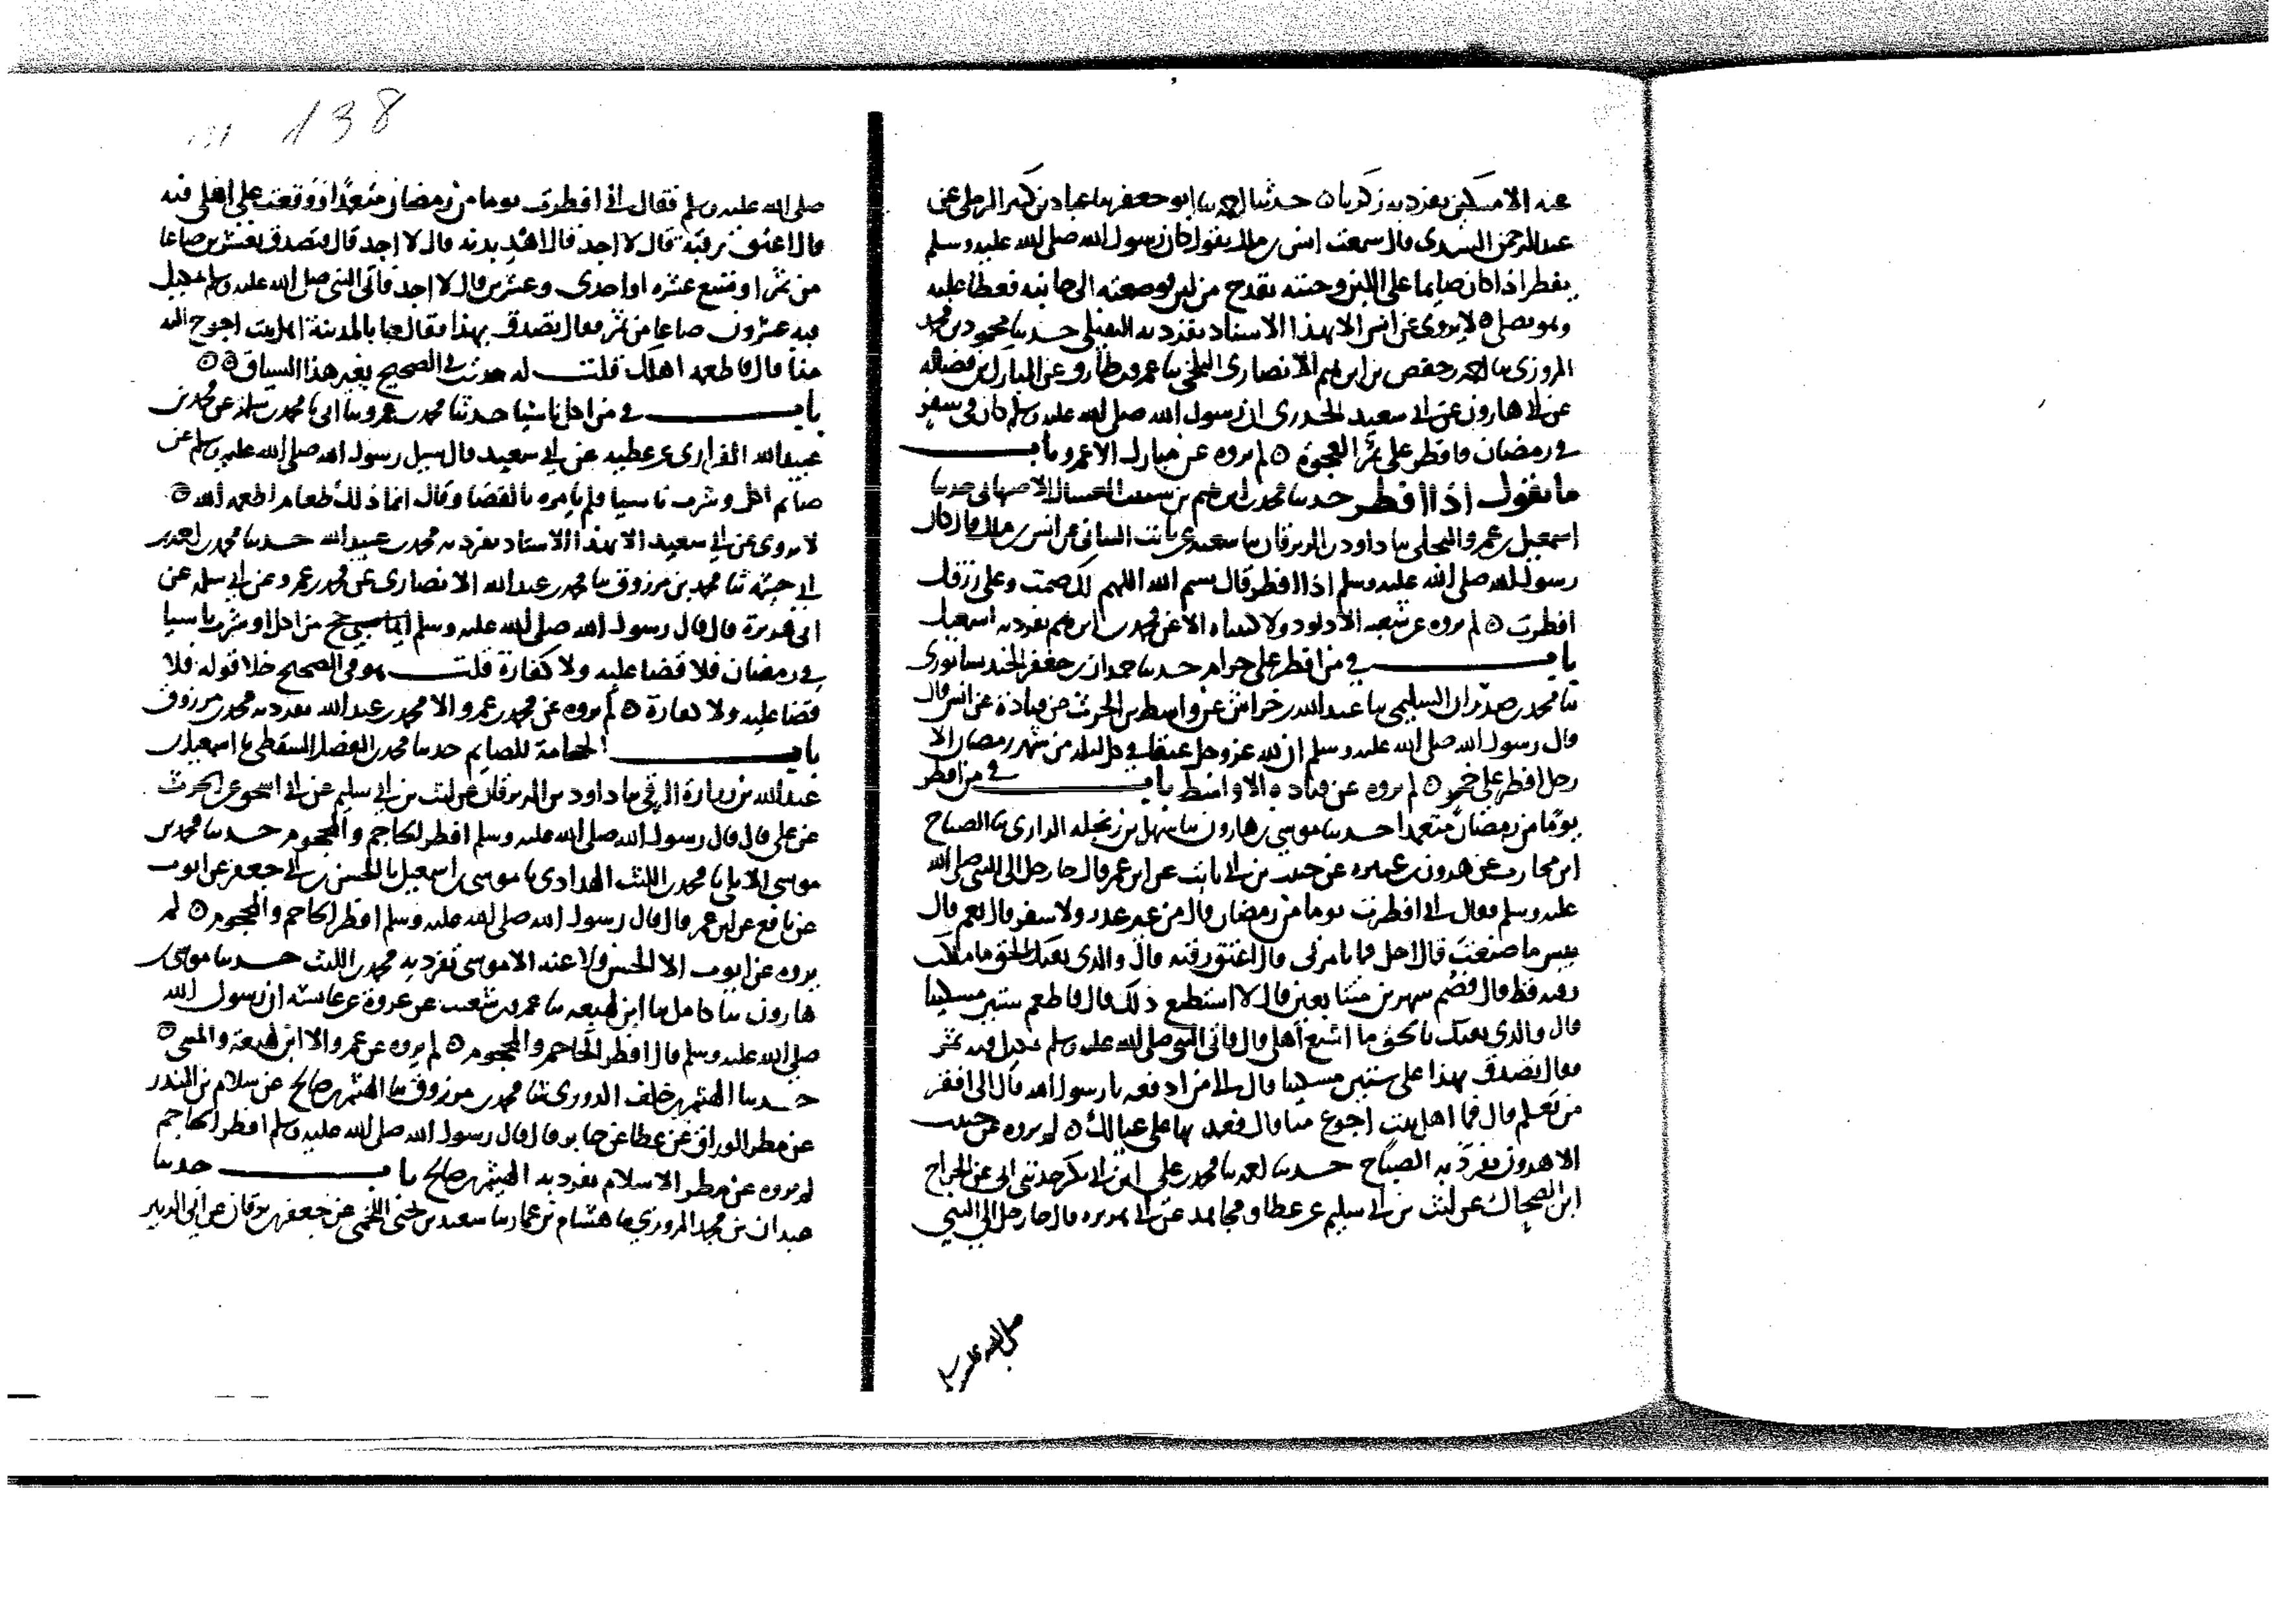 عنه الا مسكين تفرد به زكريا ۝ حدثنا احمد ثنا ابو جعفر ثنا عباد بن كثير الرملى عن
عبد الرحمن السدى قال سمعت انس بن ملك يقول كان رسول الله صلى الله عليه وسلم
يفطر اذا كان صايما على اللبن وجئته بقدح من لبن فوضعته الى جانبه فغطا عليه
وهو يصلى ۝ لا يروى عن انس الا بهذا الاسناد تفرد به النفيلى حدثنا محمود بن محمد
المروزى ثنا احمد حفص بن ابرهيم الانصارى البلخى ثنا عمر عن المبارك بن فضاله
عن ابى هارون عن ابى سعيد الخدرى ان رسول الله صلى الله عليه وسلم كان فى سفر
فى رمضان فافطر على تمر العجوة ۝ لم يروه عن مبارك الا عمر باب
ما يقول اذا افطر حدثنا محمد بن ابرهيم بن العسال الاصبهانى حدثنا
اسمعيل بن عمرو البجلى ثنا داود بن الزبرقان ثنا شعبة عن ثابت البنانى عن انس بن ملك قال كان
رسول الله صلى الله عليه وسلم اذا افطر قال بسم الله اللهم لك صمت وعلى رزقك
افطرت ۝ لم يروه عن شعبه الا داود ولا كتبناه الا عن محمد بن ابرهيم تفرد به اسمعيل
باب فى من افطر على حرام حدثنا حمدان بن جعفر الجنديسابورى
ثنا محمد بن صدران السليمى ثنا عبد الله بن خراش عن واسط بن الحرث عن قتادة عن انس قال
قال رسول الله صلى الله عليه وسلم ان لله عز وجل عتقا فى كل ليله من شهر رمضان الا
رجل افطر على خمر ۝ لم يروه عن قتاده الا واسط باب فى من افطر
يوما من رمضان متعمدا حدثنا موسى بن هارون ثنا سهل بن زنجله الرازى ثنا الصباح
ابن محارب عن هرون بن عنتره عن حبيب بن ابى ثابت عن ابن عمر قال جا رجل الى النبى صلى الله
عليه وسلم فقال انى افطرت يوما من رمضان قال من غير عذر ولا سفر قال نعم قال
بيس ما صنعت قال اجل فما تامرنى قال اعتق رقبه قال والذى بعثك بالحق ما ملكت
رقبه قط قال فصم شهرين متتابعين قال لا استطيع ذلك قال فاطعم ستين مسكينا
قال والذى بعثك بالحق ما اشبع اهلى قال فاتى النبى صلى الله عليه وسلم بمكتل فيه تمر
فقال تصدق بهذا على ستين مسكينا قال الى من ادفعه يا رسول الله قال الى افقر
من تعلم قال فما اهل بيت احوج منا قال فتصدق بها على عيالك ۝ لم يروه عن حبيب
الا هرون تفرد به الصباح حدثنا احمد ثنا محمد بن على ابن ابى بكر حدثنى ابى عن الجراح
ابن الضحاك عن ليث بن ابى سليم عن عطا ومجاهد عن ابى هريره قال جا رجل الى النبى
صلى الله عليه وسلم
138
صلى الله عليه وسلم فقال انى افطرت يوما من رمضان متعمدا ووقعت على اهلى فيه
قال اعتق رقبة قال لا اجد قال اهد بدنه قال لا اجد قال فتصدق بعشرين صاعا
من تمر او تسع عشره او احدى وعشرين قال لا اجد فاتى النبى صلى الله عليه وسلم بمكتل
فيه عشرون صاعا من تمر فقال تصدق بهذا فقال ما بالمدينة اهل بيت احوج اليه
منا قال فاطعمه اهلك قلت له حديث فى الصحيح بغير هذا السياق ۝۝
باب فى من اكل ناسيا حدثنا محمد بن عمرو ثنا ابى ثنا محمد بن سلمة عن محمد بن
عبيد الله الفزارى عن عطيه عن ابى سعيد قال سيل رسول الله صلى الله عليه وسلم عن
صايم اكل وشرب ناسيا فلم يامره بالقضا وقال انما ذلك طعام اطعمه الله ۝
لا يروى عن ابى سعيد الا بهذا الاسناد تفرد به محمد بن عبيد الله حدثنا محمد بن احمد بن
ابى خيثمة ثنا محمد بن مرزوق ثنا محمد بن عبد الله الانصارى عن محمد بن عمرو عن ابى سلمه عن
ابى هريرة قال قال رسول الله صلى الله عليه وسلم من اكل او شرب ناسيا
فى رمضان فلا قضا عليه ولا كفارة قلت هو فى الصحيح خلا قوله فلا
قضا عليه ولا كفارة ۝ لم يروه عن محمد بن عمرو الا محمد بن عبد الله تفرد به محمد بن مرزوق
باب الحجامة للصايم حدثنا محمد بن الفضل السقطى ثنا اسمعيل بن
عبد الله بن زرارة الرقى ثنا داود بن الزبرقان عن ليث بن ابى سليم عن ابى اسحق عن الحرث
عن على قال قال رسول الله صلى الله عليه وسلم افطر الحاجم والمحجوم حدثنا محمد بن
موسى الابلى ثنا محمد بن الليث الهدادى ثنا موسى بن اسمعيل ثنا الحسن بن ابى جعفر عن ايوب
عن نافع عن ابن عمر قال قال رسول الله صلى الله عليه وسلم افطر الحاجم والمحجوم ۝ لم
يروه عن ايوب الا الحسن ولا عنه الا موسى تفرد به محمد بن الليث حدثنا موسى بن
هارون ثنا كامل ثنا ابن لهيعه ثنا عمرو بن شعيب عن عروة عن عايشه ان رسول الله
صلى الله عليه وسلم قال افطر الحاجم والمحجوم ۝ لم يروه عن عمرو الا ابن لهيعة والمثنى ۝
حدثنا الهيثم بن خلف الدورى ثنا محمد بن مرزوق ثنا الهيثم بن صالح عن سلام بن المنذر
عن مطر الوراق عن عطا عن جابر قال قال رسول الله صلى الله عليه وسلم افطر الحاجم
لم يروه عن مطر الا سلام تفرد به الهيثم بن صالح باب حدثنا
عبدان بن محمد المروزى ثنا هشام بن عمار ثنا سعيد بن يحيى اللخمى عن جعفر بن برقان عن ابى الزبير